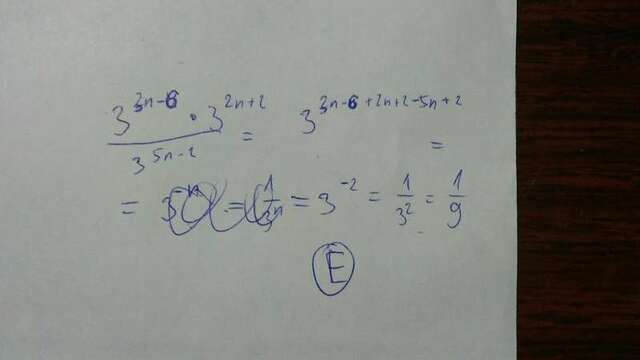 3^{3n-6} · 3^{2n+2} / 3^{5n-2} = 3^{3n-6+2n+2-5n+2} =
= = 3^{-2} = 1/3^2 = 1/9
E